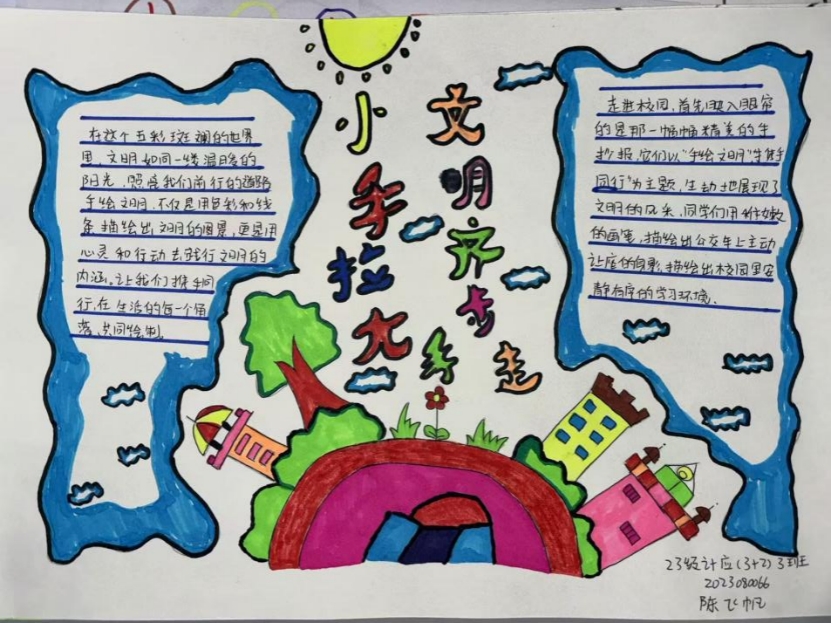 小手拉大手
文明齐步走
在这个五彩斑斓的世界
里,文明如同一缕温暖的
阳光,照亮我们前行的道路
手绘文明,不仅是用色彩和线
条描绘出文明的图景,更是用
心灵和行动去践行文明的
内涵。让我们携手同
行,在生活的每一个角
落,共同绘制
走进校园,首先映入眼帘
的是那一幅幅精美的手
抄报,它们以"手绘文明"携手
同行"为主题,生动地展现了
文明的风采,同学们用稚嫩
的画笔,描绘出公交车上主动
让座的身影,描绘出校园里安
静有序的学习环境.
23级计应(3+2)3班
2023080066
陈飞帆